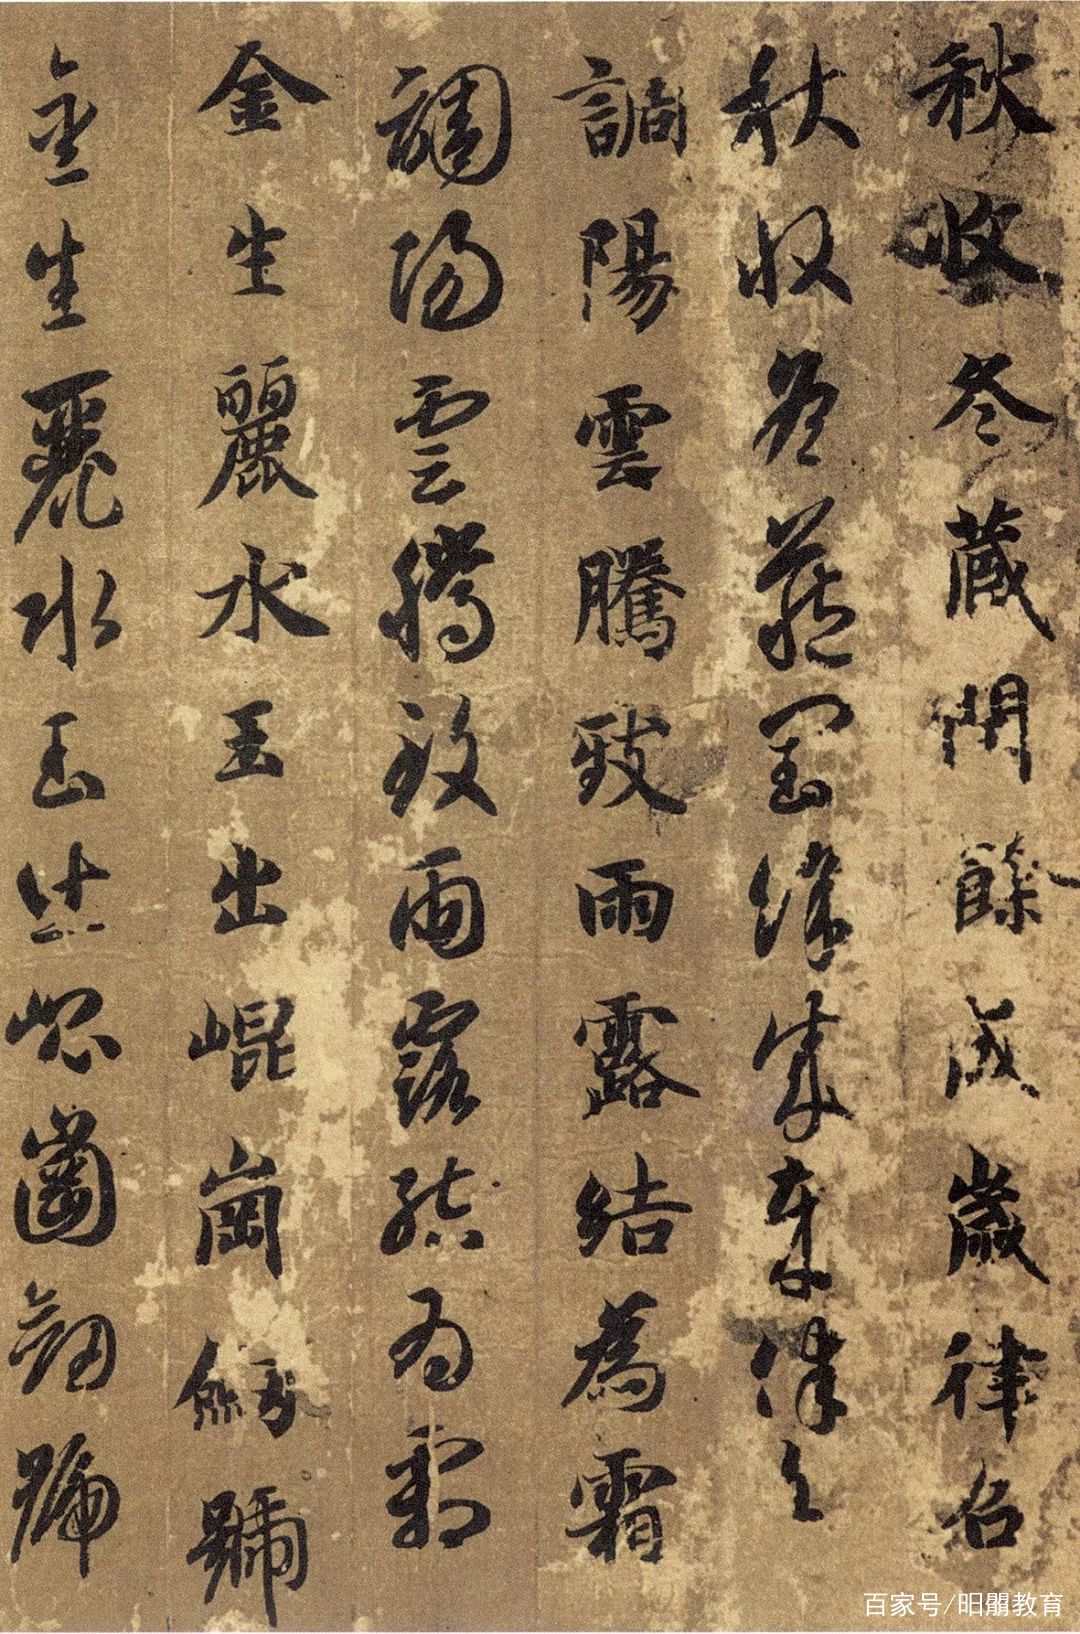 秋收冬藏閏餘成歲律召
秋收冬藏閏餘成歲律召
調陽雲騰致雨露結為霜
調陽雲騰致雨露結為霜
金生麗水玉出崐崗劒號
金生麗水玉出崐崗劒號
百家号/昍朤教育